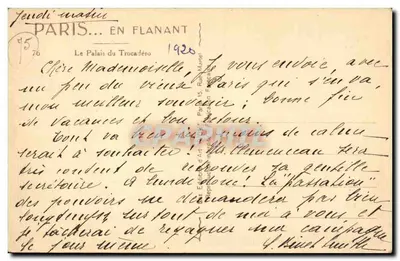 Jeudi matin
PARIS... EN FLANANT
76 Le Palais du Trocadéro 1920
Chère Mademoiselle, Je vous envoie avec
un peu du vieux Paris qui s'en va,
mon meilleur souvenir; Bonne fin
de vacances et bon retour.
Tout va bien de calme
serait à souhaiter! Mr Clemenceau sera
très content de retrouver sa gentille
secrétaire. A lundi donc! La "passation"
des pouvoirs ne demandera pas bien
longtemps surtout de moi à vous et
je tâcherai de regagner ma campagne
le jour même